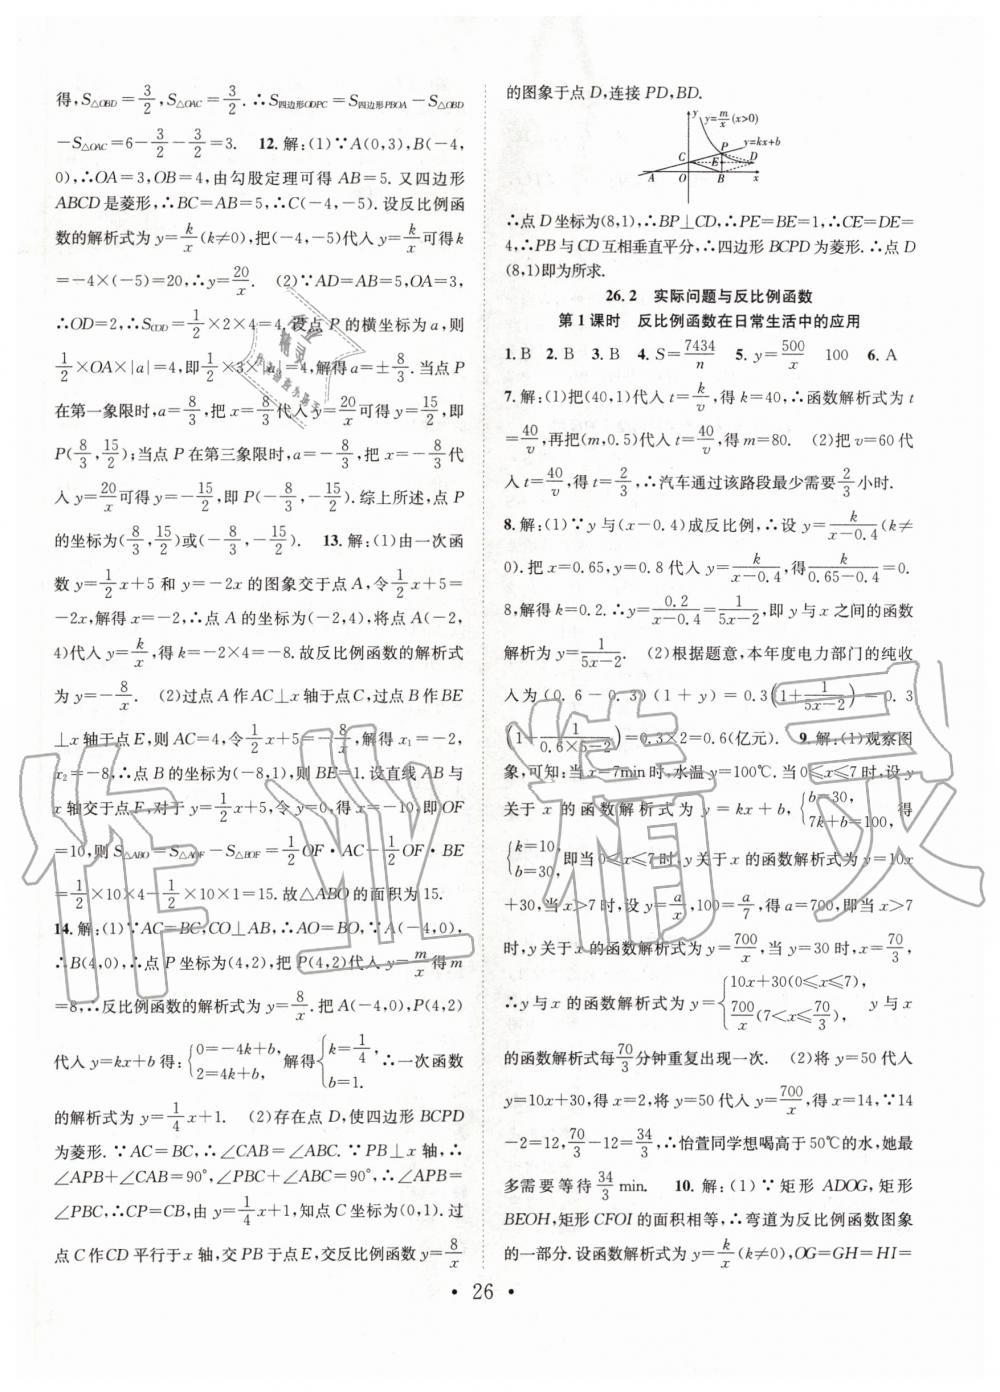 得,S△OBD=3/2,S△OAC=3/2.∴S四边形ODPC=S四边形PBOA-S△OBD
-S△OAC=6-3/2-3/2=3. 12.解:(1)∵A(0,3),B(-4,
0),∴OA=3,OB=4,由勾股定理可得 AB=5.又四边形
ABCD是菱形,∴BC=AB=5,∴C(-4,-5).设反比例函
数的解析式为 y=k/x(k≠0),把(-4,-5)代入 y=k/x可得k
=-4×(-5)=20.∴y=20/x. (2)∵AD=AB=5,OA=3,
∴OD=2,∴S△COD=1/2×2×4=4,设点 P 的横坐标为a,则
1/2×OA×|a|=4,即1/2×3×|a|=4,解得a=±8/3.当点P
在第一象限时,a=8/3,把 x=8/3代入y=20/x可得 y=15/2,即
P(8/3,15/2);当点 P 在第三象限时,a=-8/3,把 x=-8/3代
入 y=20/x可得 y=-15/2,即 P(-8/3,-15/2).综上所述,点 P
的坐标为(8/3,15/2)或(-8/3,-15/2). 13.解:(1)由一次函
数 y=1/2x+5 和 y=-2x 的图象交于点 A,令1/2x+5=
-2x,解得 x=-2,∴点 A 的坐标为(-2,4),将点 A(-2,
4)代入 y=k/x,得 k=-2×4=-8.故反比例函数的解析式
为 y=-8/x. (2)过点 A 作 AC⊥x 轴于点 C,过点 B 作 BE
⊥x 轴于点 E,则 AC=4,令1/2x+5=-8/x,解得 x₁=-2,
x₂=-8,∴点 B 的坐标为(-8,1),则 BE=1.设直线 AB 与
x 轴交于点 F,对于 y=1/2x+5,令 y=0,得 x=-10,即OF
=10,则 S△ABO=S△AOF-S△BOF=1/2OF·AC-1/2OF·BE
=1/2×10×4-1/2×10×1=15.故△ABO 的面积为 15.
14.解:(1)∵AC=BC,CO⊥AB,∴AO=BO,∵A(-4,0),
∴B(4,0),∴点 P 坐标为(4,2),把 P(4,2)代入 y=m/x得m
=8,∴反比例函数的解析式为 y=8/x.把 A(-4,0),P(4,2)
代入 y=kx+b 得:{0=-4k+b, 2=4k+b, 解得{k=1/4, b=1. ∴一次函数
的解析式为 y=1/4x+1. (2)存在点 D,使四边形 BCPD
为菱形.∵AC=BC,∴∠CAB=∠ABC.∵PB⊥x 轴,∴
∠APB+∠CAB=90°,∠PBC+∠ABC=90°,∴∠APB=
∠PBC,∴CP=CB,由 y=1/4x+1,知点 C 坐标为(0,1).过
点 C 作CD 平行于x 轴,交 PB 于点 E,交反比例函数 y=8/x
的图象于点 D,连接 PD,BD.
y
y=m/x(x>0)
y=kx+b
P
C
E
D
A
O
B
x
∴点 D 坐标为(8,1),∴BP⊥CD,∴PE=BE=1,∴CE=DE=
4,∴PB 与 CD 互相垂直平分,∴四边形 BCPD 为菱形.∴点 D
(8,1)即为所求.
26.2 实际问题与反比例函数
第 1 课时 反比例函数在日常生活中的应用
1. B 2. B 3. B 4. S=7434/n 5. y=500/x 100 6. A
7.解:(1)把(40,1)代入 t=k/v,得 k=40,∴函数解析式为 t
=40/v,再把(m,0.5)代入 t=40/v,得 m=80. (2)把 v=60代
入 t=40/v,得 t=2/3,∴汽车通过该路段最少需要2/3小时.
8.解:(1)∵y 与(x-0.4)成反比例,∴设 y=k/(x-0.4)(k≠
0).把 x=0.65,y=0.8 代入 y=k/(x-0.4),得k/(0.65-0.4)=0.
8,解得 k=0.2.∴y=0.2/(x-0.4)=1/(5x-2),即 y 与 x 之间的函数
解析为 y=1/(5x-2). (2)根据题意,本年度电力部门的纯收
入为(0.6-0.3)(1+y)=0.3(1+1/(5x-2))=0.3
(1+1/(0.6×5-2))=0.3×2=0.6(亿元). 9.解:(1)观察图
象,可知:当 x=7min时,水温 y=100℃.当 0≤x≤7 时,设 y
关于 x 的函数解析式为 y=kx+b,{b=30, 7k+b=100, 得
{k=10, b=30, 即当 0≤x≤7 时,y 关于 x 的函数解析式为 y=10x
+30,当 x>7 时,设 y=a/x,100=a/7,得 a=700,即当 x>7
时,y 关于 x 的函数解析式为 y=700/x,当 y=30 时,x=70/3,
∴y 与 x 的函数解析式为 y={10x+30(0≤x≤7), 700/x(7<x≤70/3), y 与 x
的函数解析式每70/3分钟重复出现一次. (2)将 y=50 代入
y=10x+30,得 x=2,将 y=50 代入 y=700/x,得 x=14,∵14
-2=12,70/3-12=34/3,∴怡萱同学想喝高于50℃的水,她最
多需要等待34/3min. 10.解:(1)∵矩形 ADOG,矩形
BEOH,矩形 CFOI 的面积相等,∴弯道为反比例函数图象
的一部分.设函数解析式为 y=k/x(k≠0),OG=GH=HI=
· 26 ·
作业精灵